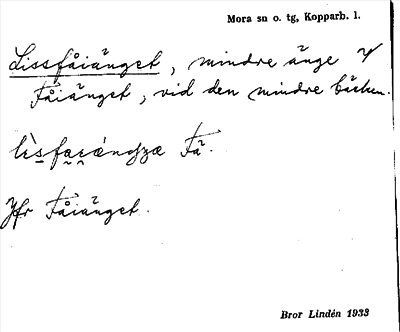 Mora sn o. tg, Kopparb. l.
Lissfåiänget, mindre änge i
Fåiänget, vid den mindre bäcken.
Få.
Jfr Fåiänget.
Bror Lindén 1933